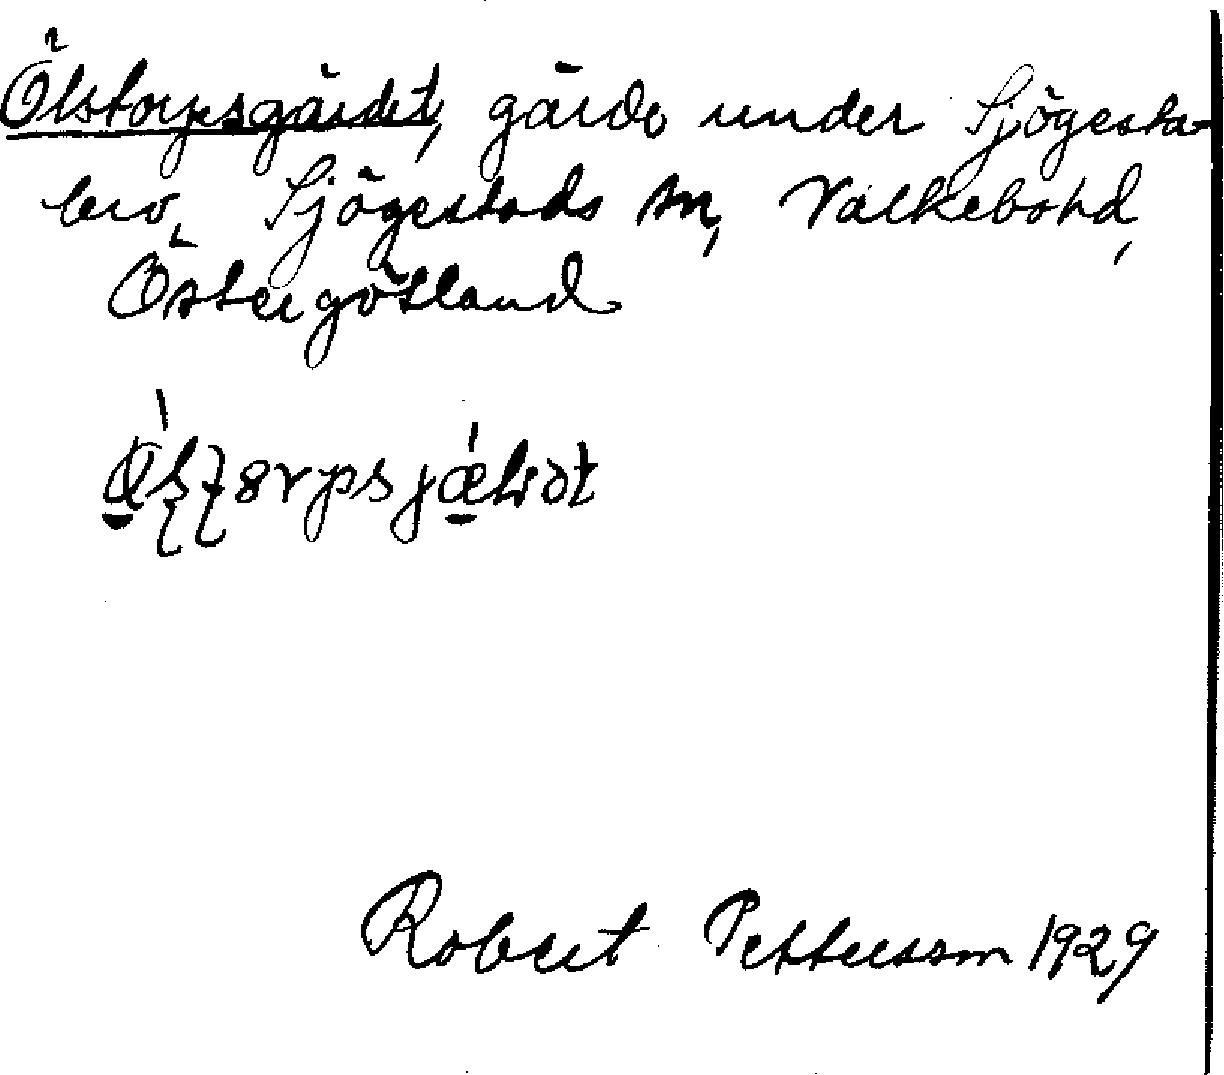 Ölstorpsgärdet, gärde under Sjögesta-
bro, Sjögestads sn, Valkebo hd,
Östergötland
Robert Pettersson 1929